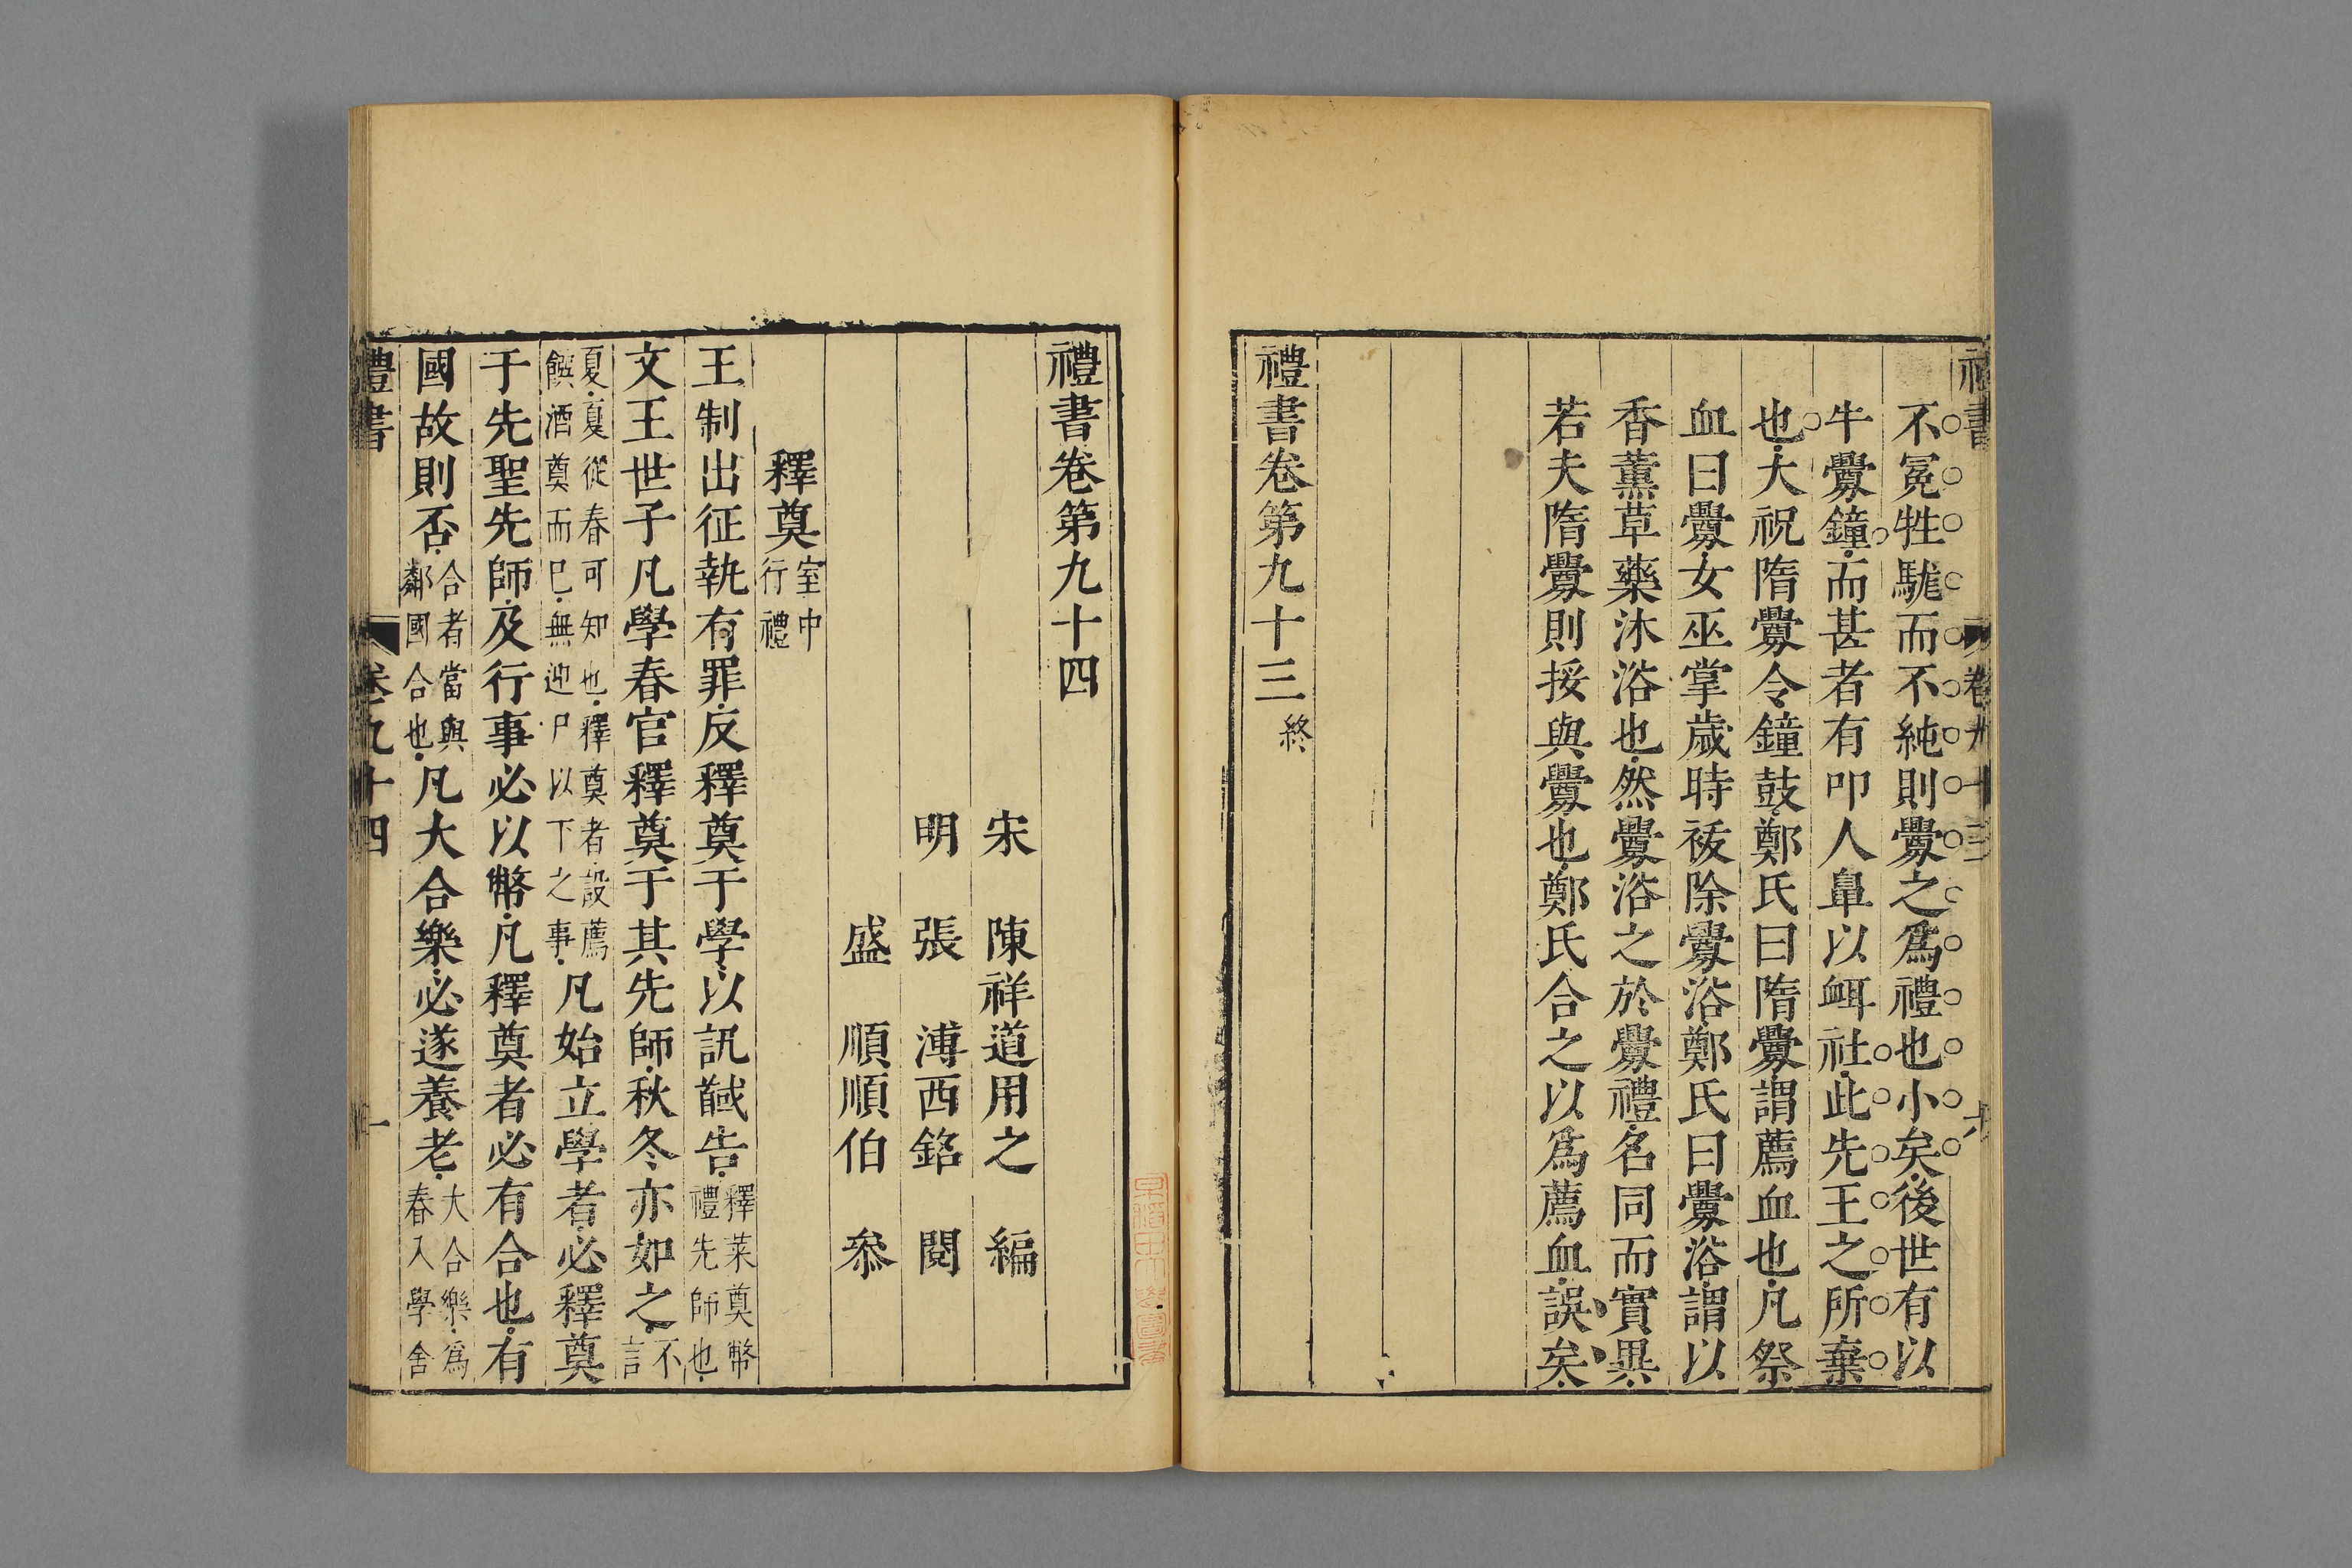 不冕牲駹而不純則釁之爲禮也小矣後世有以
牛釁鐘而甚者有叩人鼻以衈社此先王之所棄
也大祝隋釁令鐘鼓鄭氏曰隋釁謂薦血也凡祭
血曰釁女巫掌歲時祓除釁浴鄭氏曰釁浴謂以
香薰草藥沐浴也然釁浴之於釁禮名同而實異
若夫隋釁則挼與釁也鄭氏合之以爲薦血誤矣
禮書卷第九十三終
禮書卷第九十四
宋 陳祥道用之 編
明 張 溥西銘 閱
盛 順順伯 叅
釋奠室中行禮
王制出征執有罪反釋奠于學以訊馘告釋菜奠幣禮先師也
文王世子凡學春官釋奠于其先師秋冬亦如之不言
夏夏從春可知也釋奠者設薦饌酒奠而已無迎尸以下之事凡始立學者必釋奠
于先聖先師及行事必以幣凡釋奠者必有合也有
國故則否合者當與鄰國合也凡大合樂必遂養老大合樂爲春入學舍
禮書 卷九十四 一